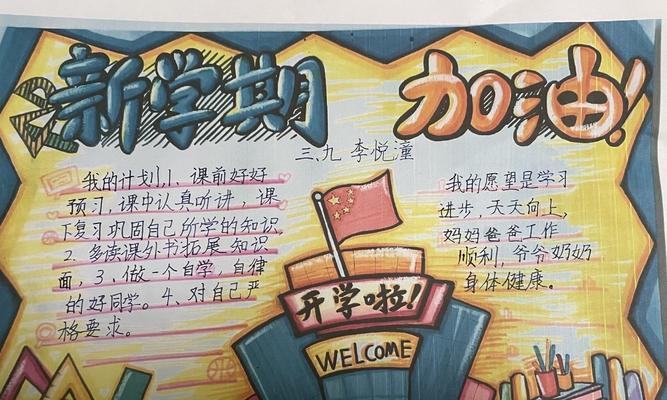 新学期 加油!
三、九 李悦潼
我的计划,1、课前好好
预习,课中认真听讲,课
下复习巩固自己所学的知识,
2、多读课外书拓展知识
面,3、做一个自学,自律
的好同学。4、对自己严
格要求。
我的愿望是学习
进步,天天向上,
妈妈爸爸工作
顺利,爷爷奶奶
身体健康。
开学啦!
WELCOME